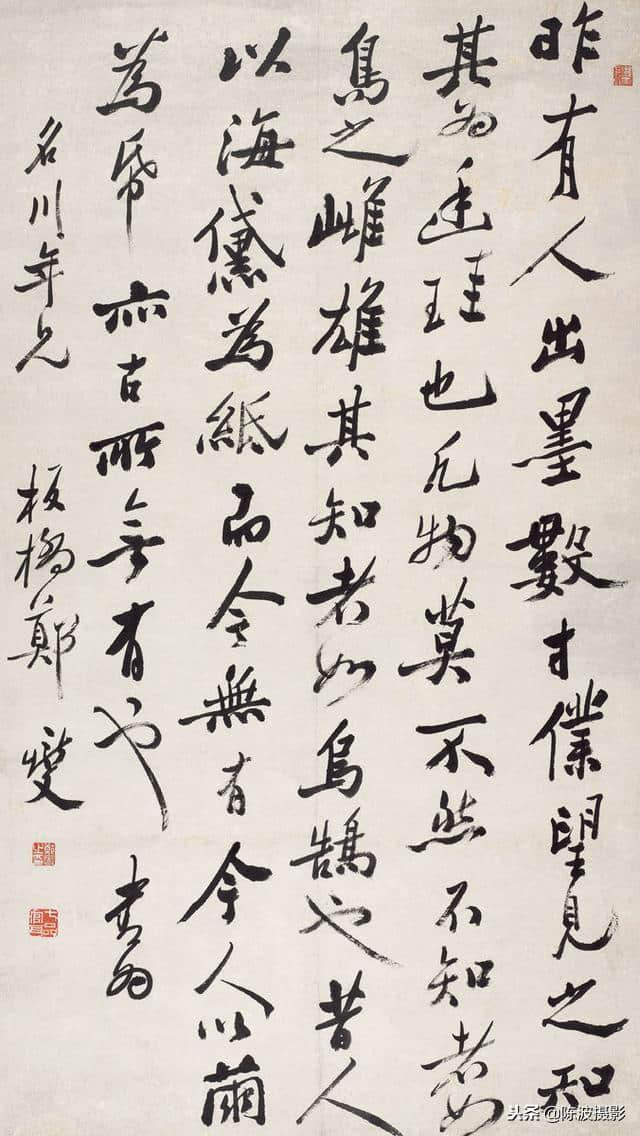 昨有人出墨數寸僕望見之知
其為廷珪也凡物莫不然不知者如
烏之雌雄其知者如烏鵠也昔人
以海黛為紙而今無有今人以繭
為帋亦古所無有也 書為
名川年兄 板橋鄭燮
七品官耳
头条@陈波摄影